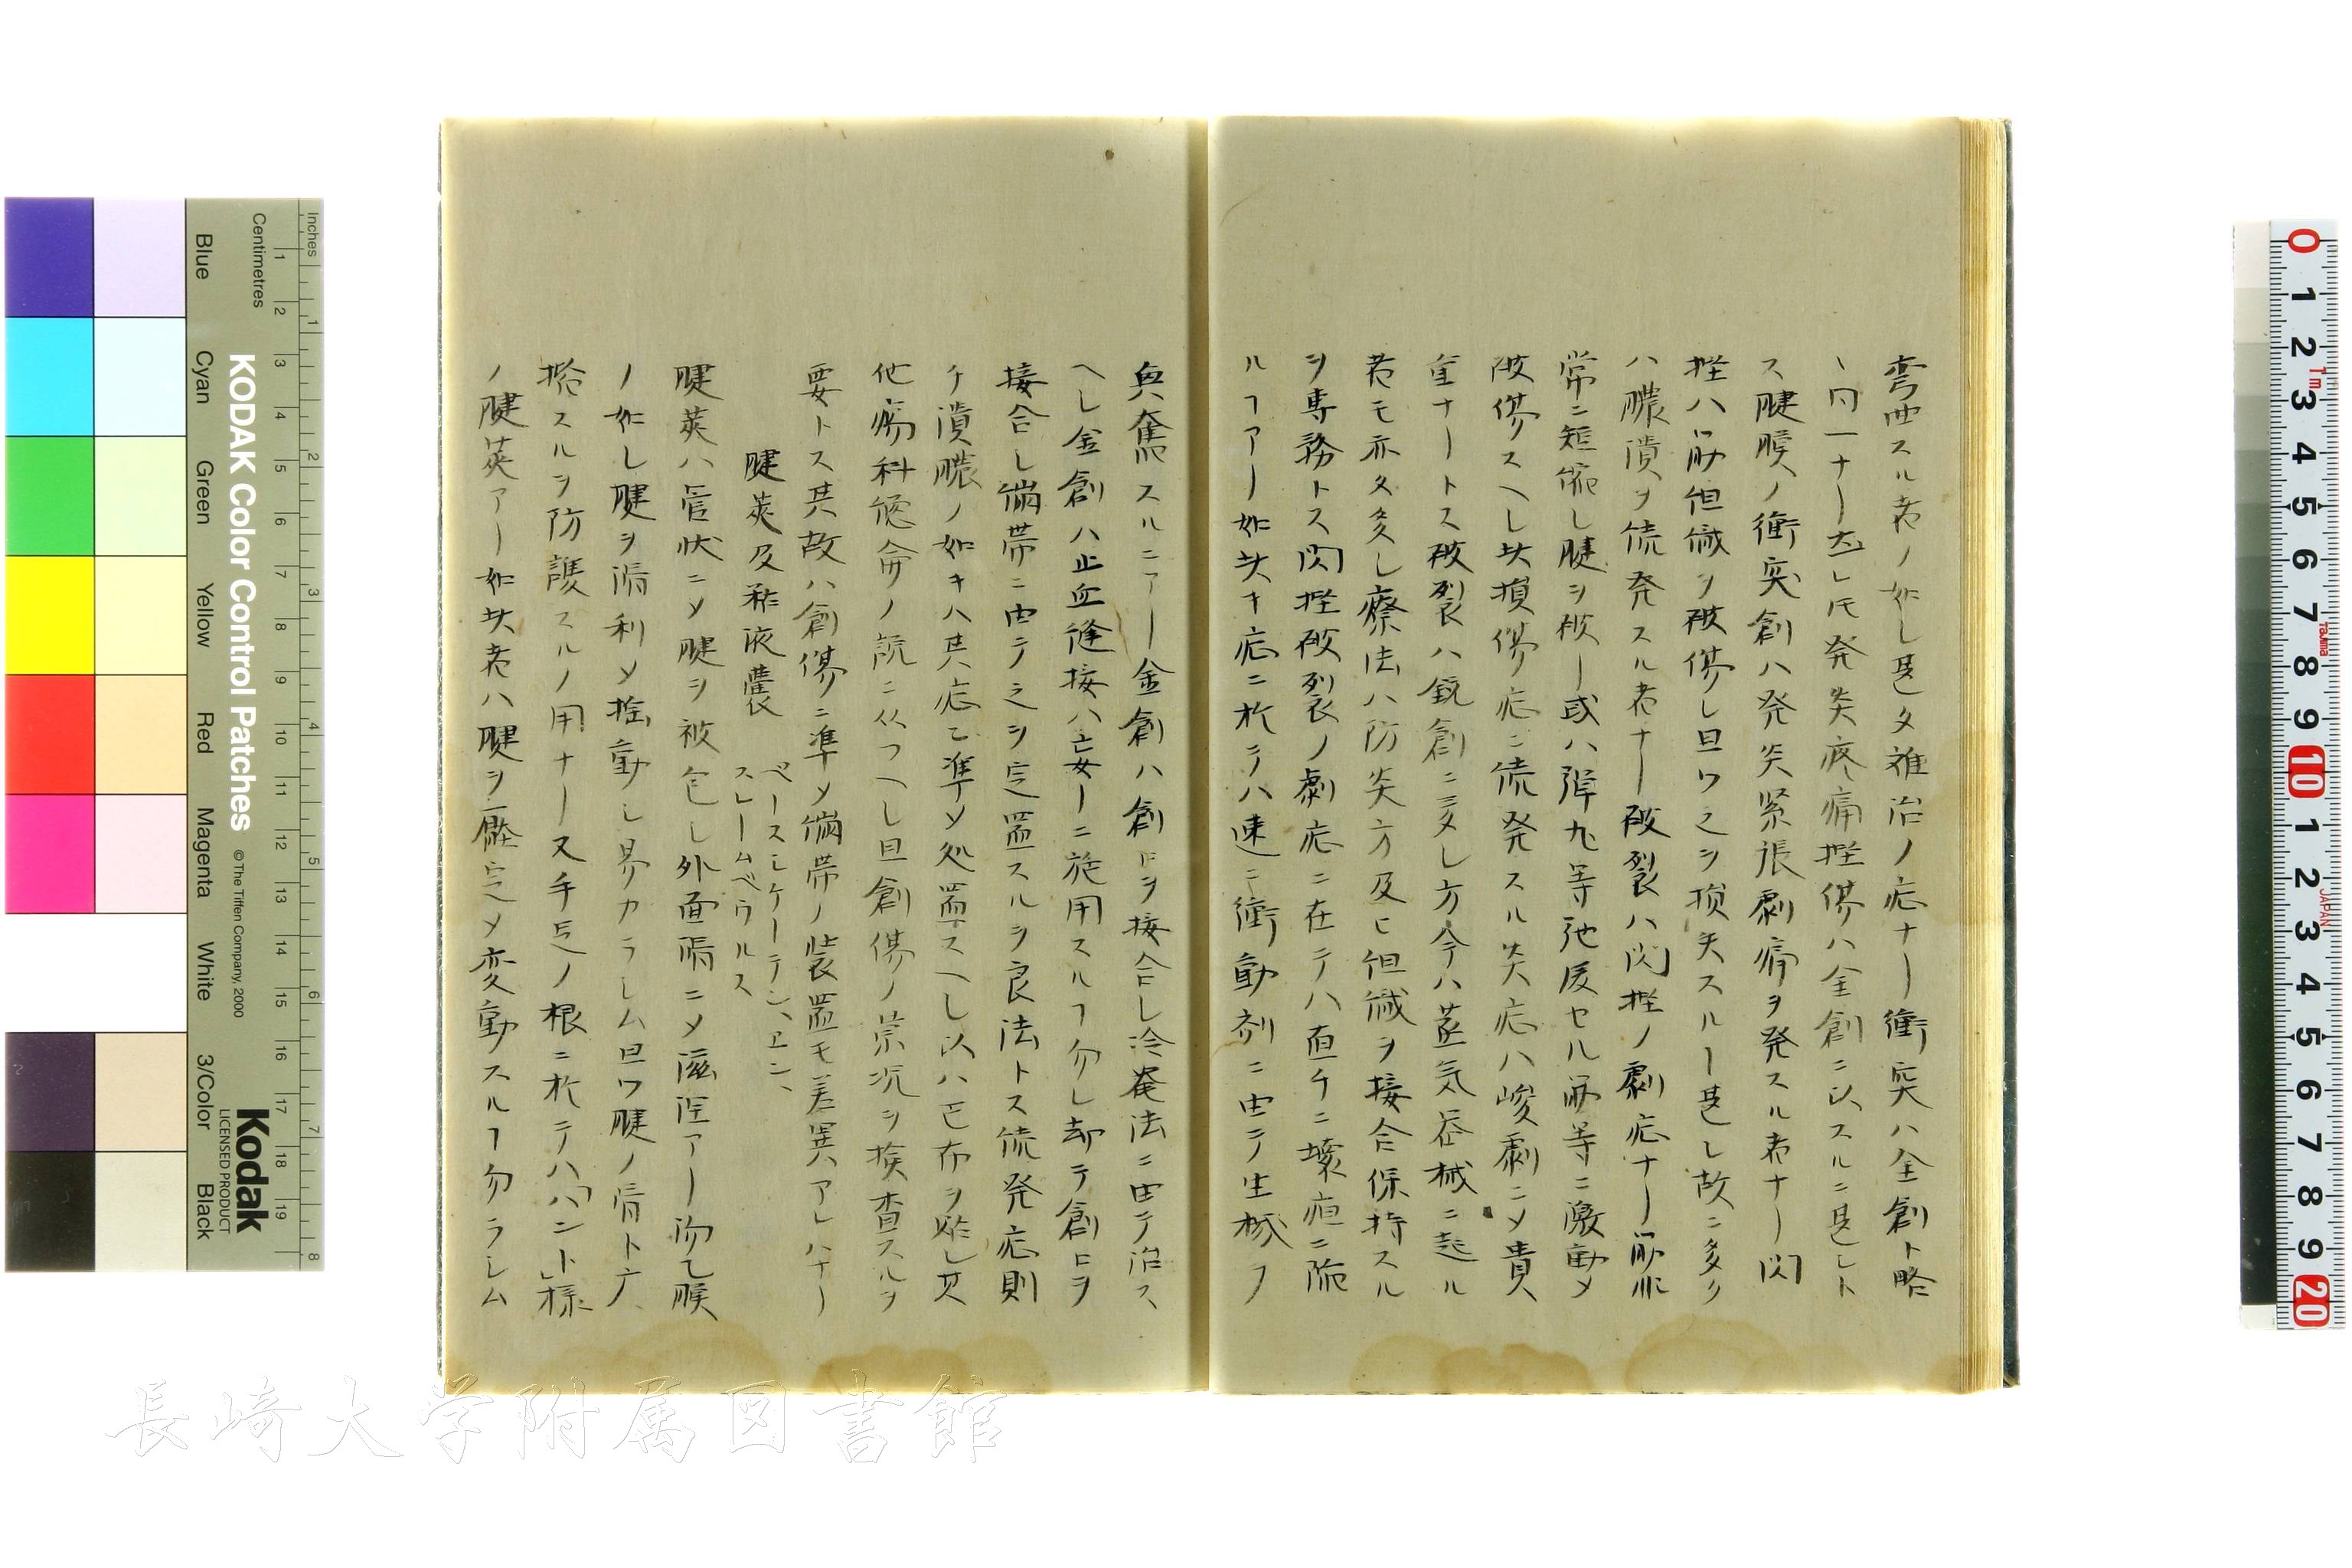 弯曲スル者ノ如シ甚タ難治ノ症ナリ衝突ハ金創ト略
、同一ナリ然レ𪜈発炎疼痛挫傷ハ金創ニ以スルニ甚シト
ス腱膜ノ衝突創ハ発炎緊張劇痛ヲ発スル者ナリ閃
挫ハ筋但織ヲ破傷シ且ツ之ヲ損失スルー甚シ故ニ多ク
ハ膿潰ヲ続発スル者ナリ破裂ハ閃挫ノ劇症ナリ筋非
常ニ短縮シ腱ヲ破リ或ハ障九等弛緩セル筋等ニ激動メ
破傷スヘシ此損傷症ニ続発スル炎症ハ峻劇ニメ貴
重ナリトス破裂ハ銃創ニ多シ方今ハ蒸気器械ニ起ル
者モ亦タ多シ療法ハ防炎方及ヒ但織ヲ接合保持スル
ヲ専務トス閃挫破裂ノ劇症ニ在テハ直チニ壊疽ニ陥
ルヿアリ如此キ症ニ於テハ速ニ衝動剤ニ由テ生機ヲ
興奮スルニアリ金創ハ創口ヲ接合シ冷罨法ニ由テ治ス
ヘシ金創ハ止血縫接ハ妄リニ施用スルヿ勿レ却テ創口ヲ
接合シ繃帯ニ由テ之ヲ定置スルヲ良法トス続発症則
チ潰膿ノ如キハ其症ニ準メ処置スヘシ以ハ亡布ヲ貼シ其
他瘍科総論ノ説ニ从フヘシ且創傷ノ景况ヲ検査スルヲ
要トス其故ハ創傷ニ準メ繃帯ノ装置モ差異アレハナリ
腱莢及稀液嚢
ペースシケーテン、エン、
スレームベウルス
腱莢ハ管状ニメ腱ヲ被包シ外面滑ニメ滋液アリ沕乙膜
ノ如シ腱ヲ滑利メ揺動シ易カラシム且ツ腱ノ滑ト广、
擦スルヲ防護スルノ用ナリ又手足ノ根ニ於テハ「バント」様
ノ腱莢アリ如此者ハ腱ヲ繋定メ変動スルヿ勿ラシム
Inches
Centimetres
Blue
Cyan
Green
Yellow
Red
Magenta
White
3/Color
Black
KODAK Color Control Patches
© The Tiffen Company, 2000
Kodak
LICENSED PRODUCT
長崎大学附属図書館